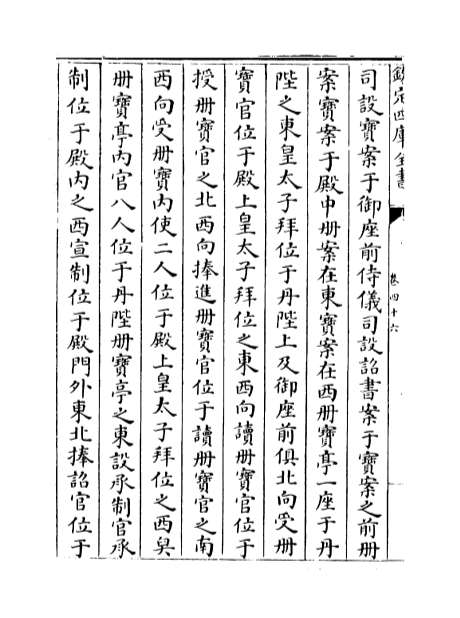 欽定四庫全書
卷四十六
司設寶案于御座前侍儀司設詔書案于寶案之前冊
案寶案于殿中冊案在東寶案在西冊寶亭一座于丹
陛之東皇太子拜位于丹陛上及御座前俱北向受冊
寶官位于殿上皇太子拜位之東西向讀冊寶官位于
授冊寶官之北西向捧進冊寶官位于讀冊寶官之南
西向受冊寶内使二人位于殿上皇太子拜位之西舁
冊寶亭内官八人位于丹陛冊寶亭之東設承制官承
制位于殿内之西宣制位于殿門外東北捧詔官位于